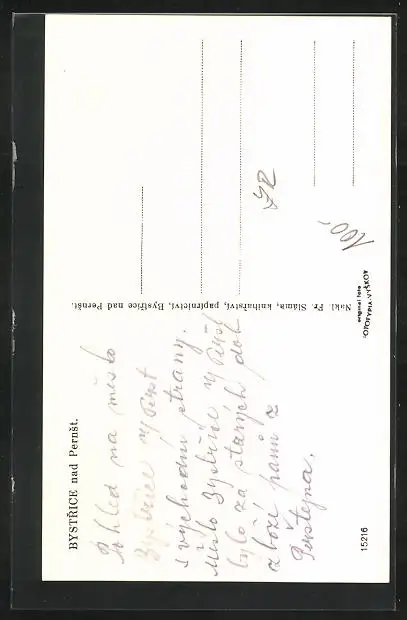 BYSTŘICE nad Pernšt.
Pohled na město
Bystřice n/ Pernšt
s východní strany.
Město Bystřice n/ Pernšt
bylo za starých dob
zboží pánů z
Pernštejna.
Nakl. Fr. Sláma, knihařství, papírnictví, Bystřice nad Pernšt.
72
100,-
original foto
FOTOTYPIA-VYŠKOV
15216